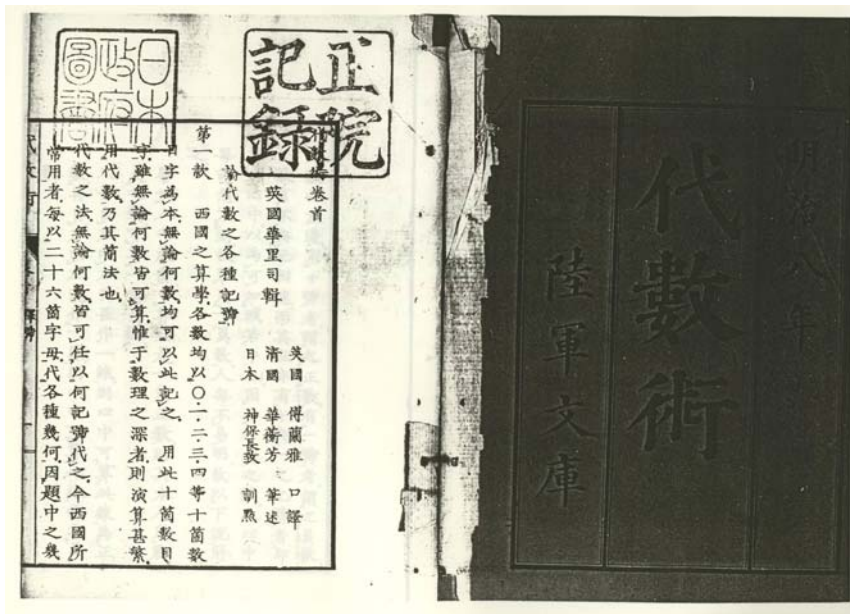 明治八年
代數術
陸軍文庫
正院
記録
日本
政府
圖書
卷首
英國華里司輯
英國 傅蘭雅 口譯
清國 華蘅芳 筆述
日本 神保長致 訓點
論代數之各種記號
第一款 西國之算學各數均以〇一二三四等十箇數
目字為本無論何數均可以此記之 用此十箇數目
字雖無論何數皆可算惟于數理之深者則演算甚繁
用代數乃其簡法也
代數之法無論何數皆可任以何記號代之今西國所
常用者每以二十六箇字母代各種幾何因題中之幾
代數術